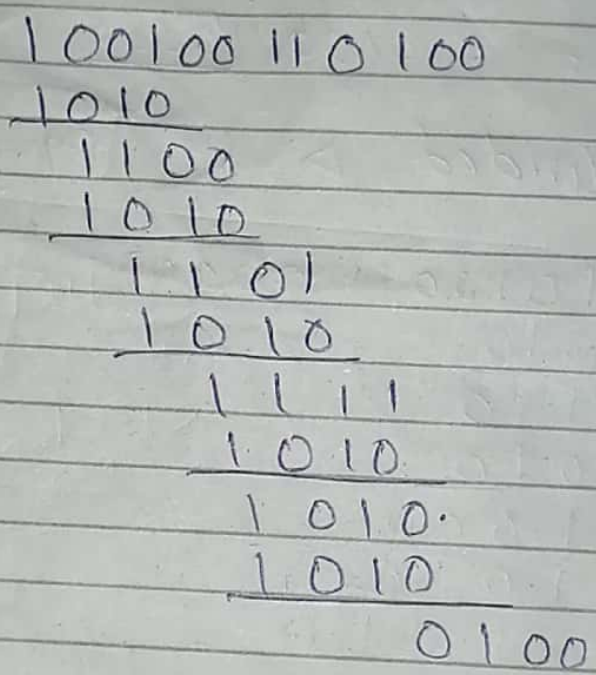 100100110100
1010
1100
1010
1101
1010
1111
1010
1010.
1010
0100